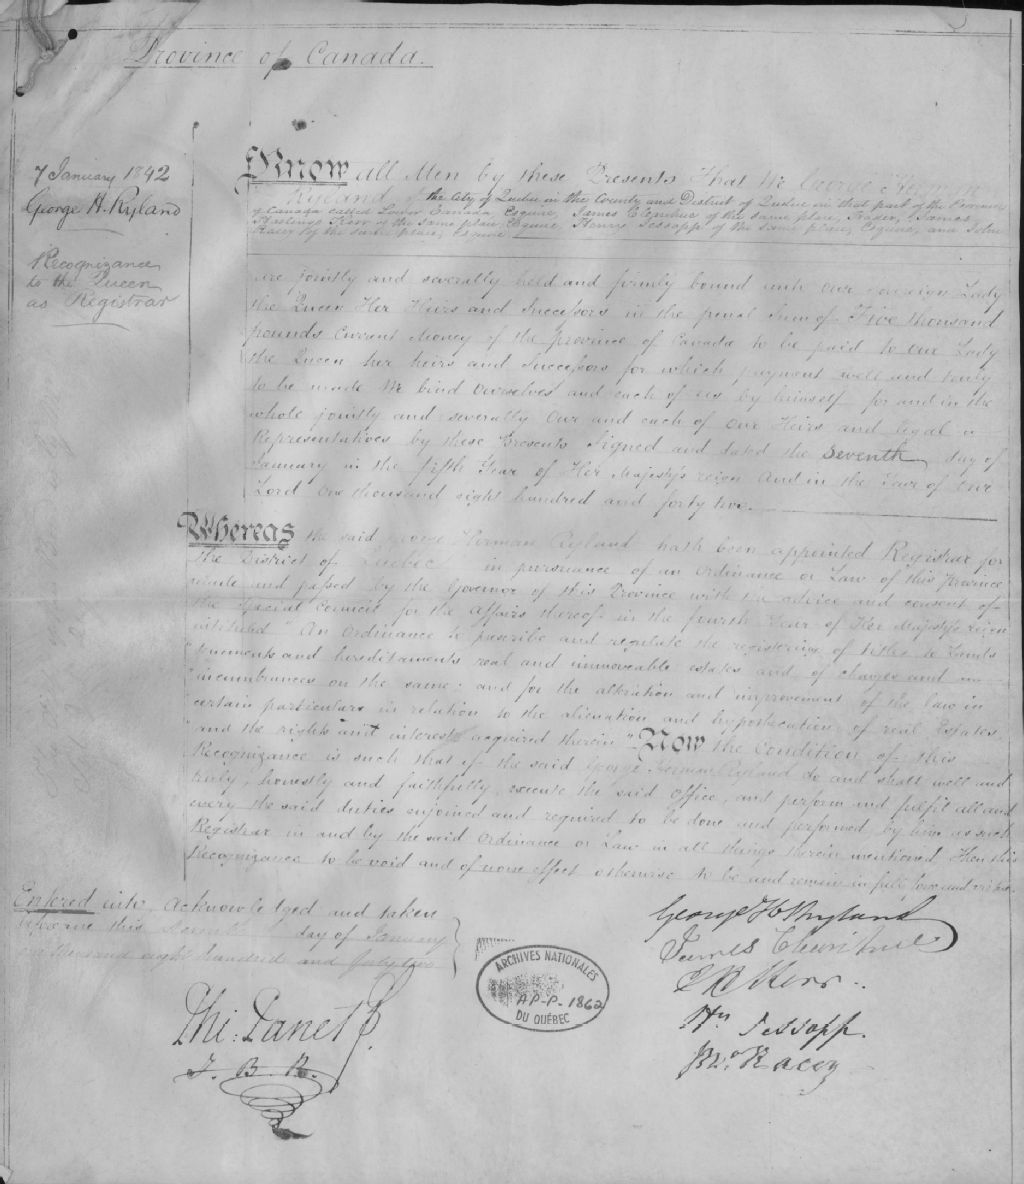 Province of Canada.
7 January 1842
George H. Ryland
Recognizance
to the Queen
as Registrar
Know all Men by these Presents That We George Herman
Ryland of the City of Quebec in the County and District of Quebec in that part of the Province
of Canada called Lower Canada, Esquire, James Clearihue of the same place, Trader, James
Hastings Kerr of the same place, Esquire, Henry Jessopp of the same place, Esquire, and John
Racey of the same place, Esquire
are jointly and severally held and firmly bound unto Our Sovereign Lady
the Queen Her Heirs and Successors in the penal Sum of Five thousand
pounds Current Money of the province of Canada to be paid to Our Lady
the Queen her heirs and Successors for which payment well and truly
to be made We bind Ourselves and each of us by himself for and in the
whole jointly and severally Our and each of Our Heirs and legal
Representatives by these Presents Signed and dated the Seventh day of
January in the fifth Year of Her Majesty's reign And in the Year of Our
Lord One thousand eight hundred and forty two.
Whereas the said George Herman Ryland hath been appointed Registrar for
the District of Quebec in pursuance of an Ordinance or Law of this Province
made and passed by the Governor of this Province with the advice and consent of
the Special Council for the affairs thereof in the fourth Year of Her Majesty's Reign
intituled "An Ordinance to prescribe and regulate the registering of titles to Lands
"tenements and hereditaments real and immoveable estates and of charges and in
"incumbrances on the same: and for the alteration and improvement of the law in
certain particulars in relation to the alienation and hypothecation of real Estates
"and the rights and interests acquired therein" Now the Condition of this
Recognizance is such that if the said George Herman Ryland do and shall well and
truly, honestly and faithfully, execute the said Office, and perform and fulfil all and
every the said duties enjoined and required to be done and performed, by him as such
Registrar in and by the said Ordinance or Law in all things therein mentioned Then this
Recognizance to be void and of none effect otherwise to be and remain in full force and virtue.
Entered into, Acknowledged and taken
before me this Seventh day of January
one thousand eight hundred and forty two
George H Ryland
James Clearihue
J H Kerr.
Hy Jessopp.
Jno. Racey
Thi: Panet
J. B. R.
ARCHIVES NATIONALES
AP-P-1862
DU QUÉBEC